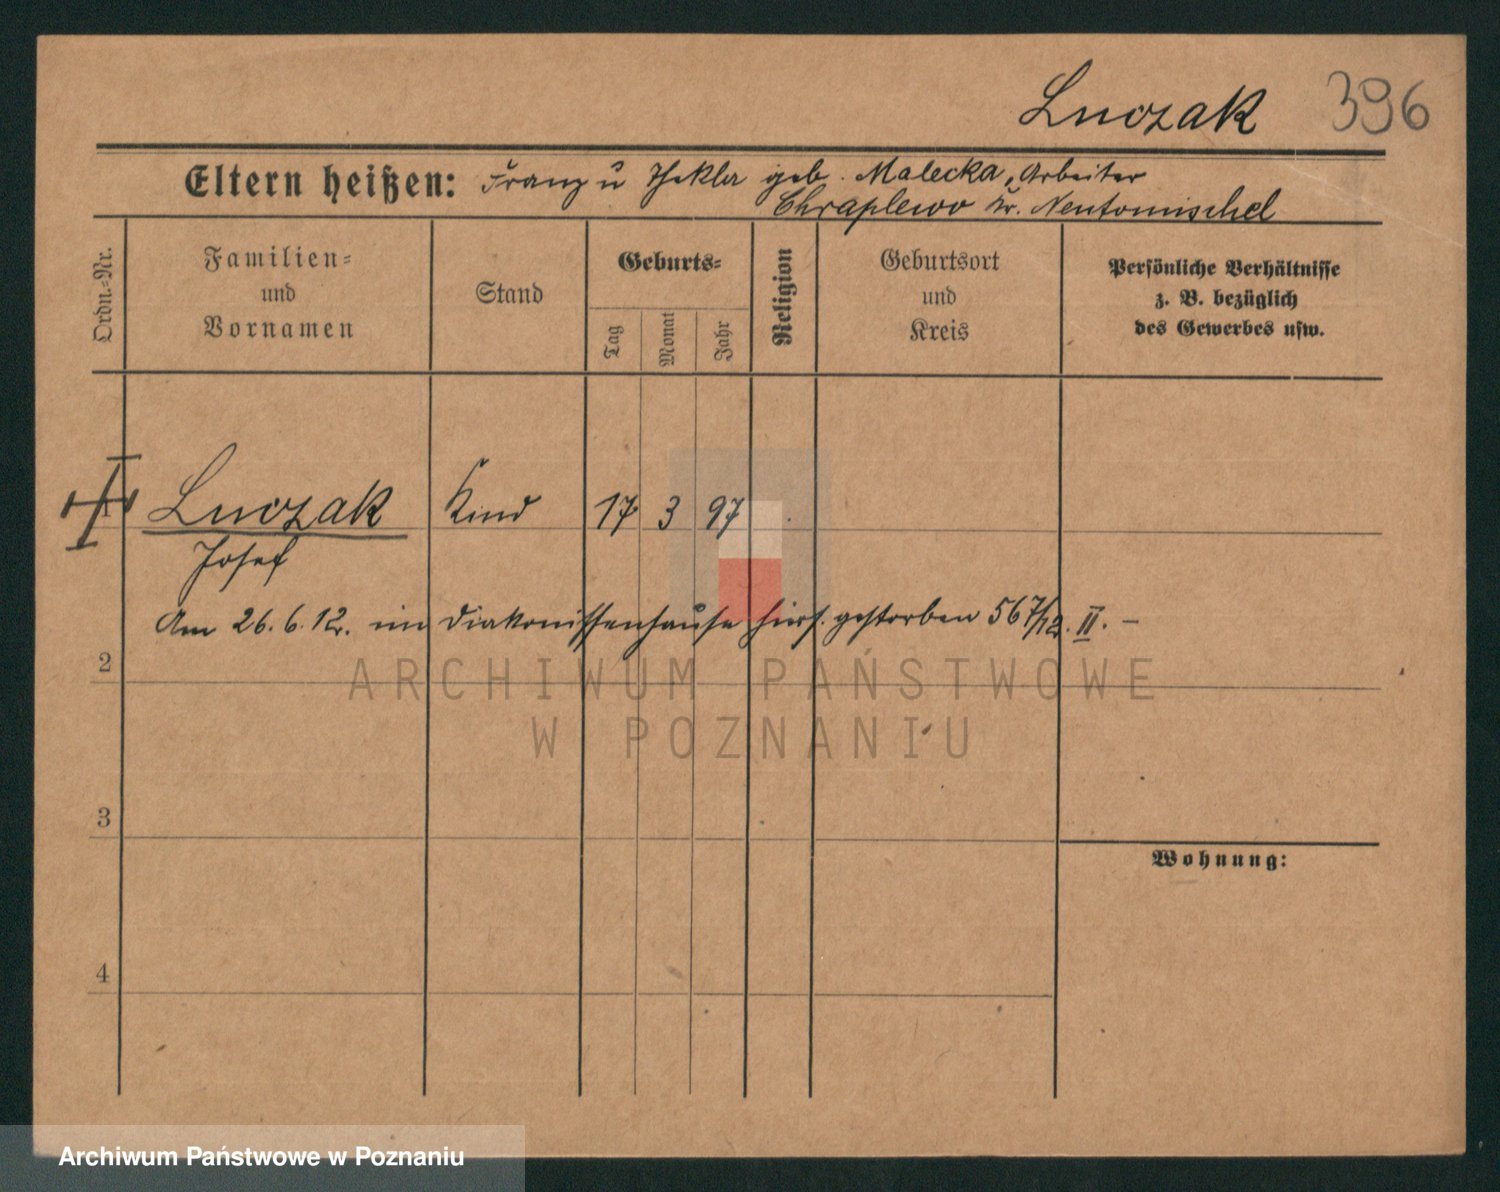 Luczak 396
Eltern heißen: Franz u Thekla geb. Malecka, Arbeiter
Chraplewo Kr. Neutomischel
Ordn.-Nr.
Familien-
und
Vornamen
Stand
Geburts-
Tag
Monat
Jahr
Religion
Geburtsort
und
Kreis
Persönliche Verhältnisse
z. B. bezüglich
des Gewerbes usw.
1 Luczak Kind 17 3 97
Josef
Am 26. 6. 12. im Diakonissenhause hiers. gestorben 567/12. II. –
2
ARCHIWUM PAŃSTWOWE
W POZNANIU
3
Wohnung:
4
Archiwum Państwowe w Poznaniu